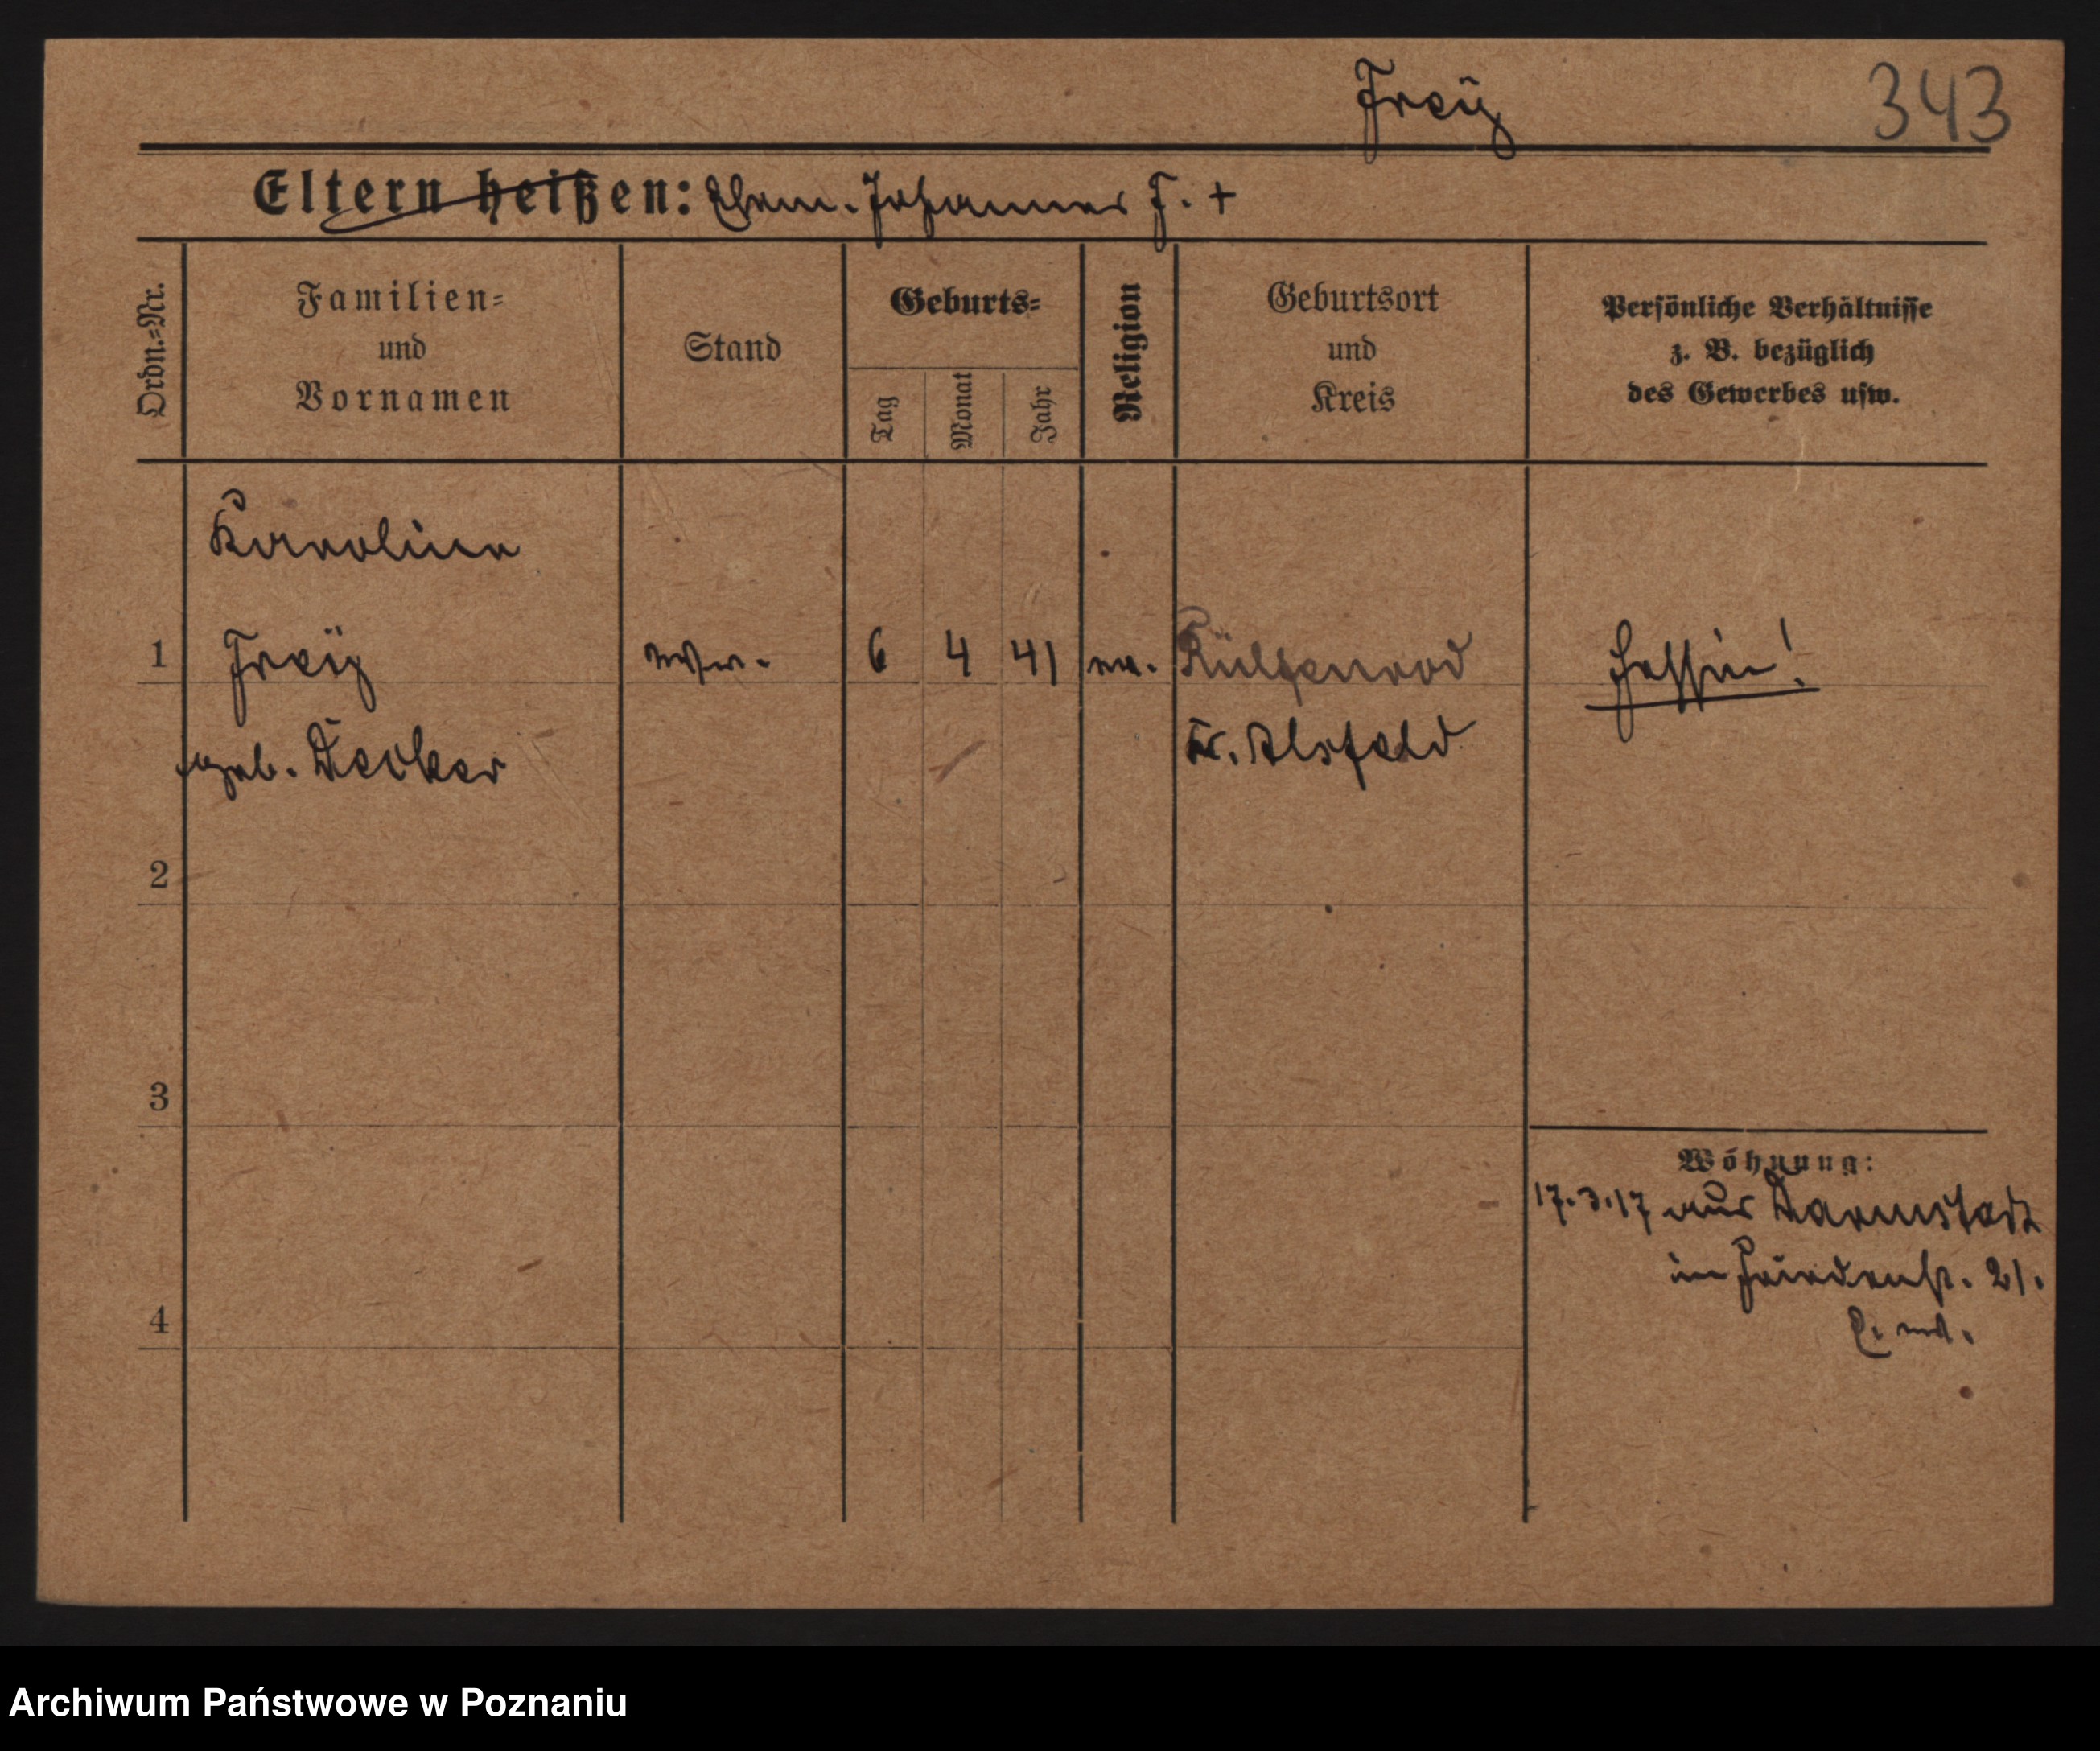 Freÿ 343
Eltern heißen: Ehem. Johannes F. +
Ordn.=Nr.
Familien=
und
Vornamen
Stand
Geburts=
Tag
Monat
Jahr
Religion
Geburtsort
und
Kreis
Persönliche Verhältnisse
z. B. bezüglich
des Gewerbes usw.
Karoline
1 Freÿ Ww. 6 4 41 ev. Rülfenrod Hessin!
geb. Decker Kr. Alsfeld
2
3
Wohnung:
17.3.17 aus Darmstadt
in Friedenstr. 21.
4
Archiwum Państwowe w Poznaniu